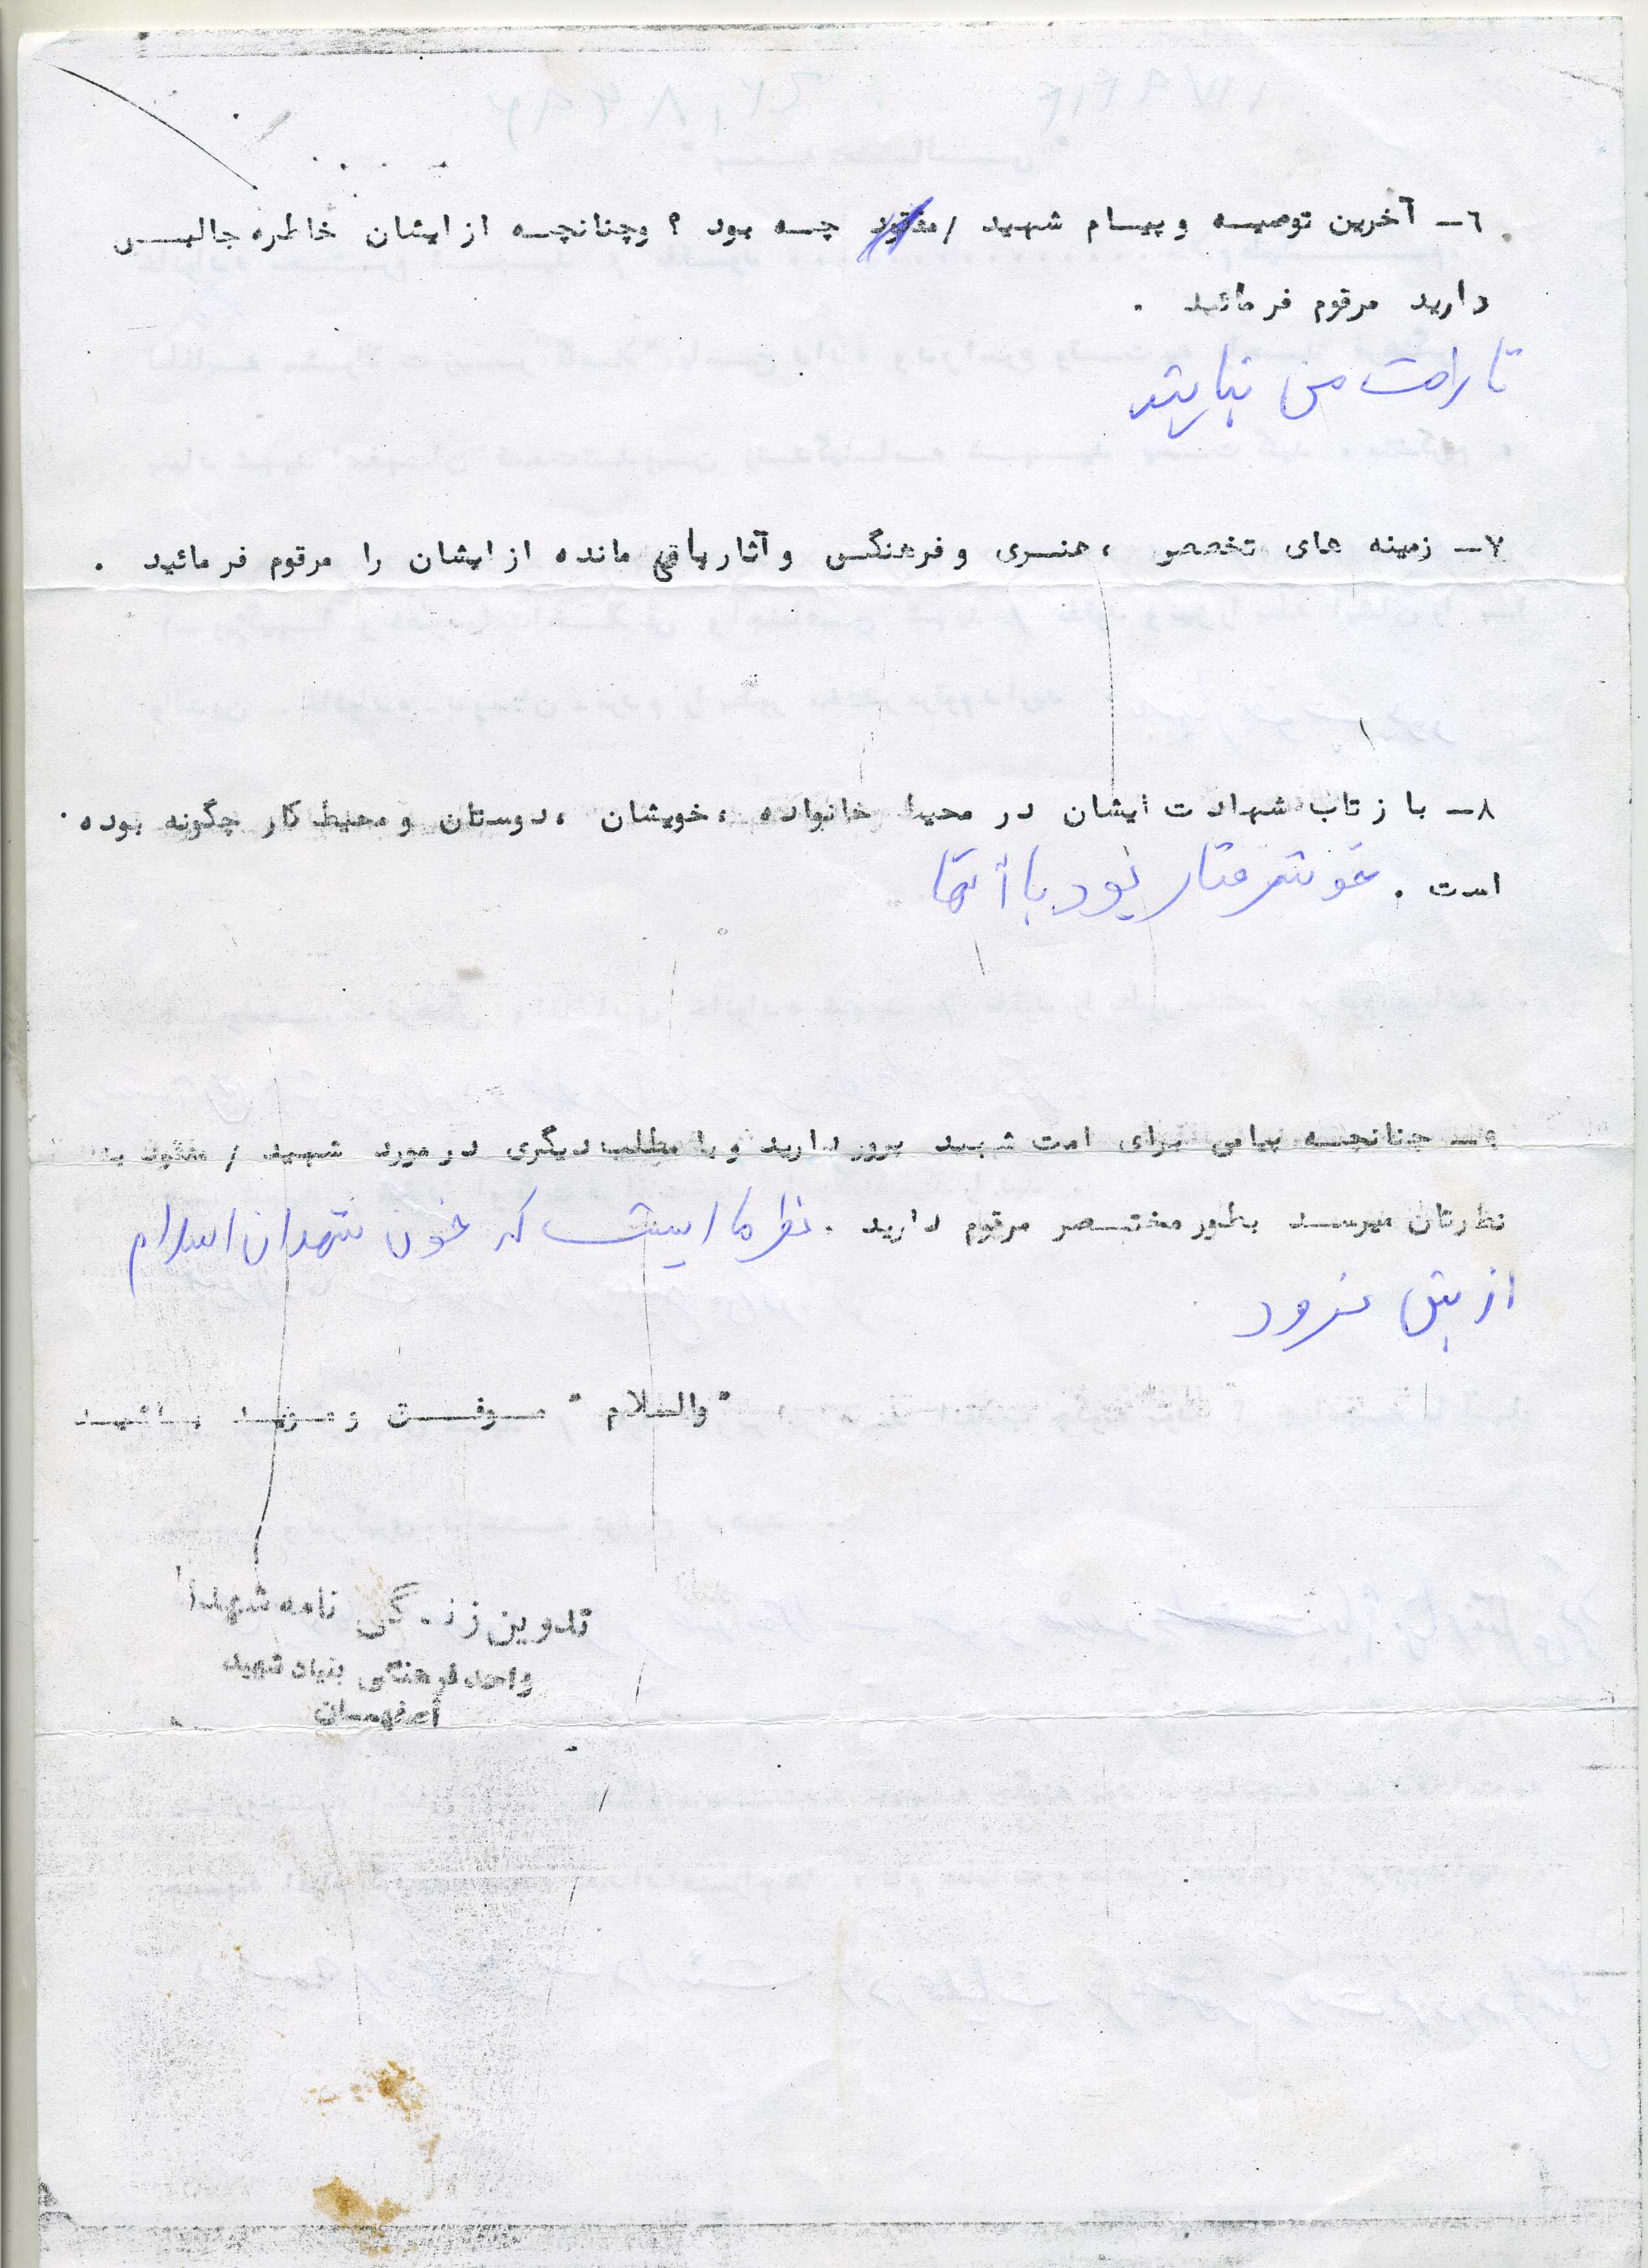 ٦ـ آخرین توصیه و پیام شهید / مفقود چه بود ؟ وچنانچه ازایشان خاطره جالبی
دارید مرقوم فرمائید .
نارامت من نباشد
٧ـ زمینه های تخصص ، هنری و فرهنگی و آثارباقی مانده ازایشان را مرقوم فرمائید .
٨ـ بازتاب شهادت ایشان در محیط خانواده ، خویشان ، دوستان و محیط کار چگونه بوده
است . خوشرفتار بود با آنها
٩ـ چنانچه پیامی برای امت شهید پرور دارید و یا مطلب دیگری در مورد شهید / مفقود به
نظرتان میرسد بطور مختصر مرقوم دارید . نظر ما اینست که خون شهدان اسلام
از بین نرود
"والسلام" موفق و موید باشید
تدوین زندگی نامه شهدا
واحد فرهنگی بنیاد شهید
اصفهان